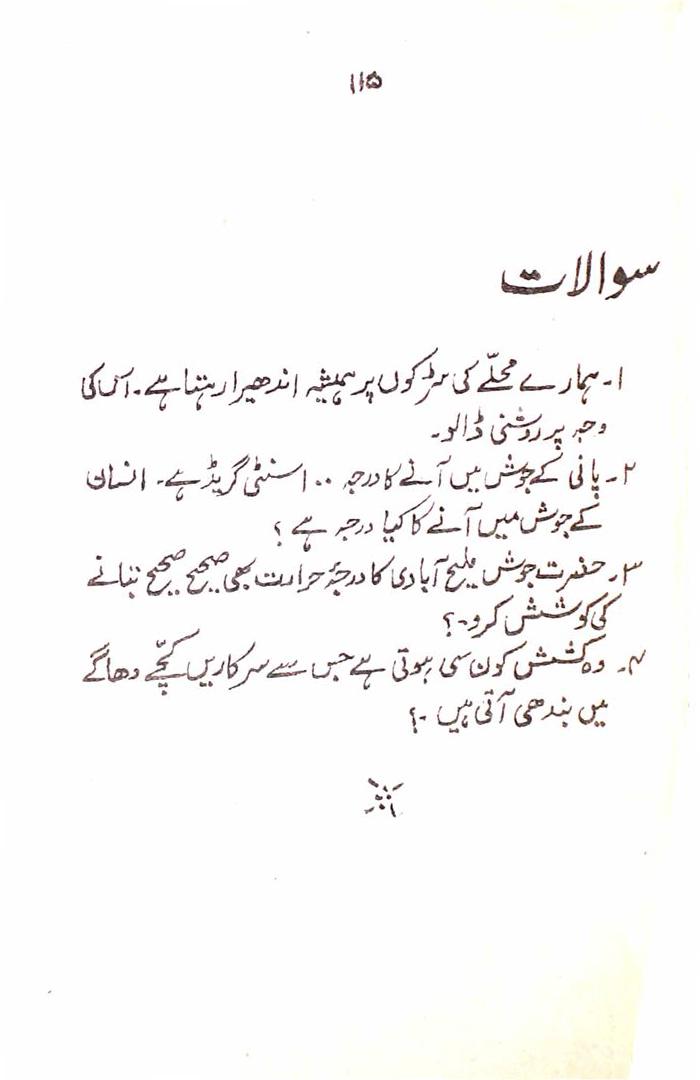 ۱۱۵
سوالات
۱۔ ہمارے محلّے کی سڑکوں پر ہمیشہ اندھیرا رہتا ہے۔ اس کی
وجہ پر روشنی ڈالو۔
۲۔ پانی کے جوش میں آنے کا درجہ ۱۰۰ سنٹی گریڈ ہے۔ انسان
کے جوش میں آنے کا کیا درجہ ہے ؟
۳۔ حضرت جوش ملیح آبادی کا درجۂ حرارت بھی صحیح صحیح بتانے
کی کوشش کرو۔؟
۴۔ وہ کشش کون سی ہوتی ہے جس سے سرکاریں کچّے دھاگے
میں بندھی آتی ہیں ۔؟